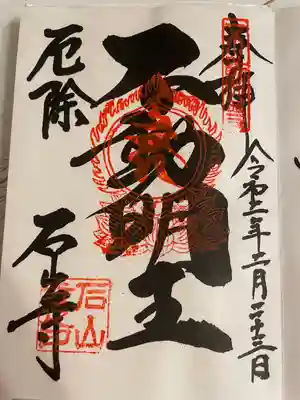 奉拝
令和二年二月二十三日
不動明王
厄除
石山寺